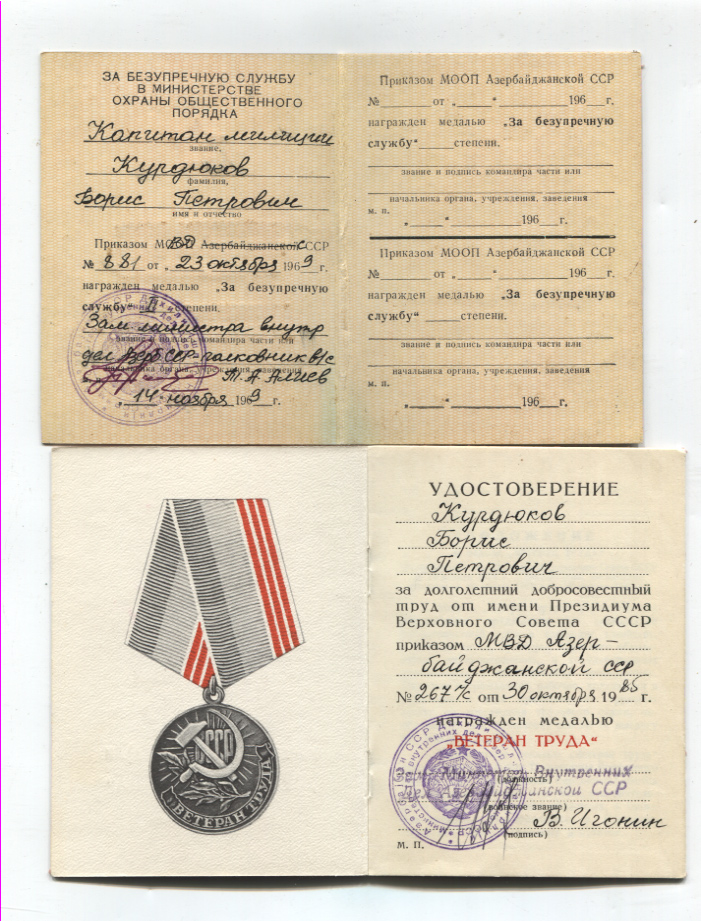 ЗА БЕЗУПРЕЧНУЮ СЛУЖБУ
В МИНИСТЕРСТВЕ
ОХРАНЫ ОБЩЕСТВЕННОГО
ПОРЯДКА
Капитан милиции
звание,
Курдюков
фамилия,
Борис Петрович
имя и отчество
Приказом Азербайджанской ССР
№ 881 от „23 октября 1969 г.
награжден медалью „За безупречную
службу“ II степени.
Зам министра внутр
звание и подпись командира части или
дел Азерб ССР-полковник в/с
начальника органа, учреждения, заведения
Т. А. Алиев
„14“ ноября 1969 г.
Приказом МООП Азербайджанской ССР
№ от „ “ 196 г.
награжден медалью „За безупречную
службу“ степени.
звание и подпись командира части или
начальника органа, учреждения, заведения
м. п.
„ “ 196 г.
Приказом МООП Азербайджанской ССР
№ от „ “ 196 г.
награжден медалью „За безупречную
службу“ степени.
звание и подпись командира части или
начальника органа, учреждения, заведения
м. п.
„ “ 196 г.
СССР
ВЕТЕРАН ТРУДА
УДОСТОВЕРЕНИЕ
Курдюков
Борис
Петрович
за долголетний добросовестный
труд от имени Президиума
Верховного Совета СССР
приказом МВД Азер-
байджанской сср
№ 267 л/с от 30 октября 1985 г.
награжден медалью
„ВЕТЕРАН ТРУДА“
Внутренних
(должность)
Азербайджанской ССР
(воинское звание)
В. Игонин
(подпись)
М. П.